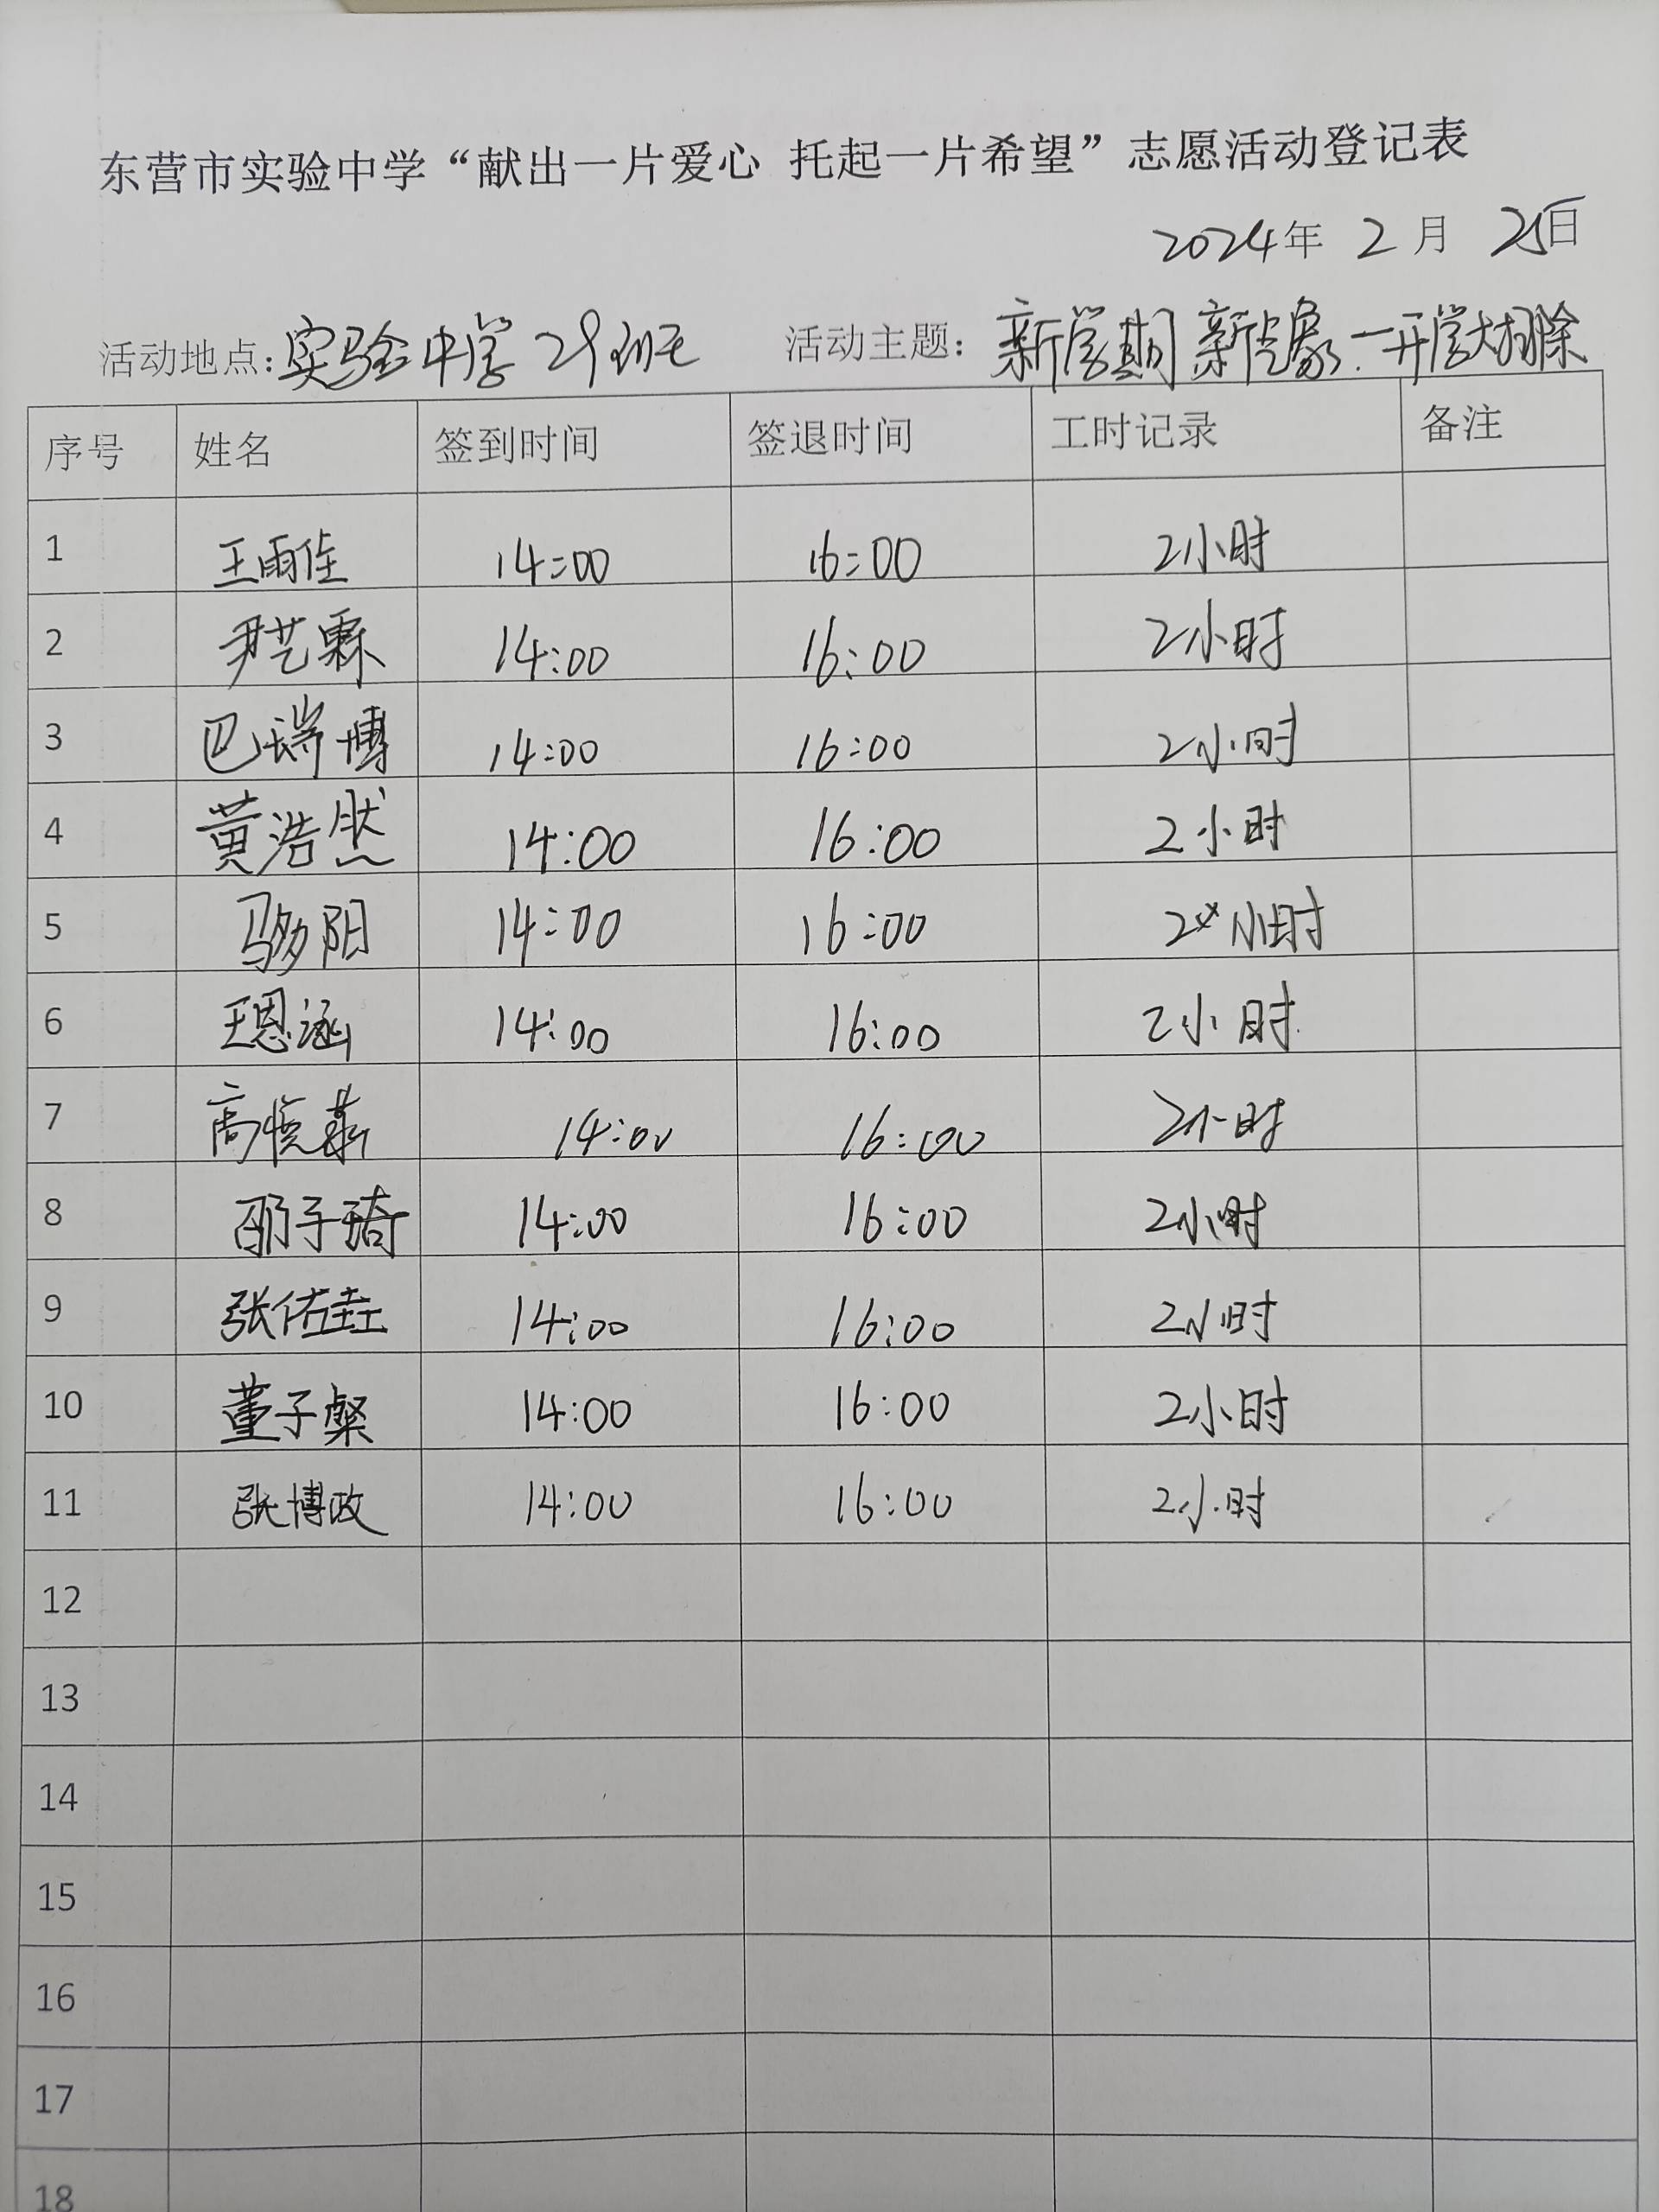 东营市实验中学“献出一片爱心 托起一片希望”志愿活动登记表
2024年 2月 25日
活动地点:实验中学29班 活动主题：新学期 新气象.一开学大扫除
序号 姓名 签到时间 签退时间 工时记录 备注
1 王雨佳 14:00 16:00 2小时
2 尹艺霖 14:00 16:00 2小时
3 巴瑞博 14:00 16:00 2小时
4 黄浩然 14:00 16:00 2小时
5 阳 14:00 16:00 2小时
6 王恩涵 14:00 16:00 2小时
7 高悦 14:00 16:00 2小时
8 子琦 14:00 16:00 2小时
9 张佑 14:00 16:00 2小时
10 董子粲 14:00 16:00 2小时
11 张博政 14:00 16:00 2小时
12
13
14
15
16
17
18